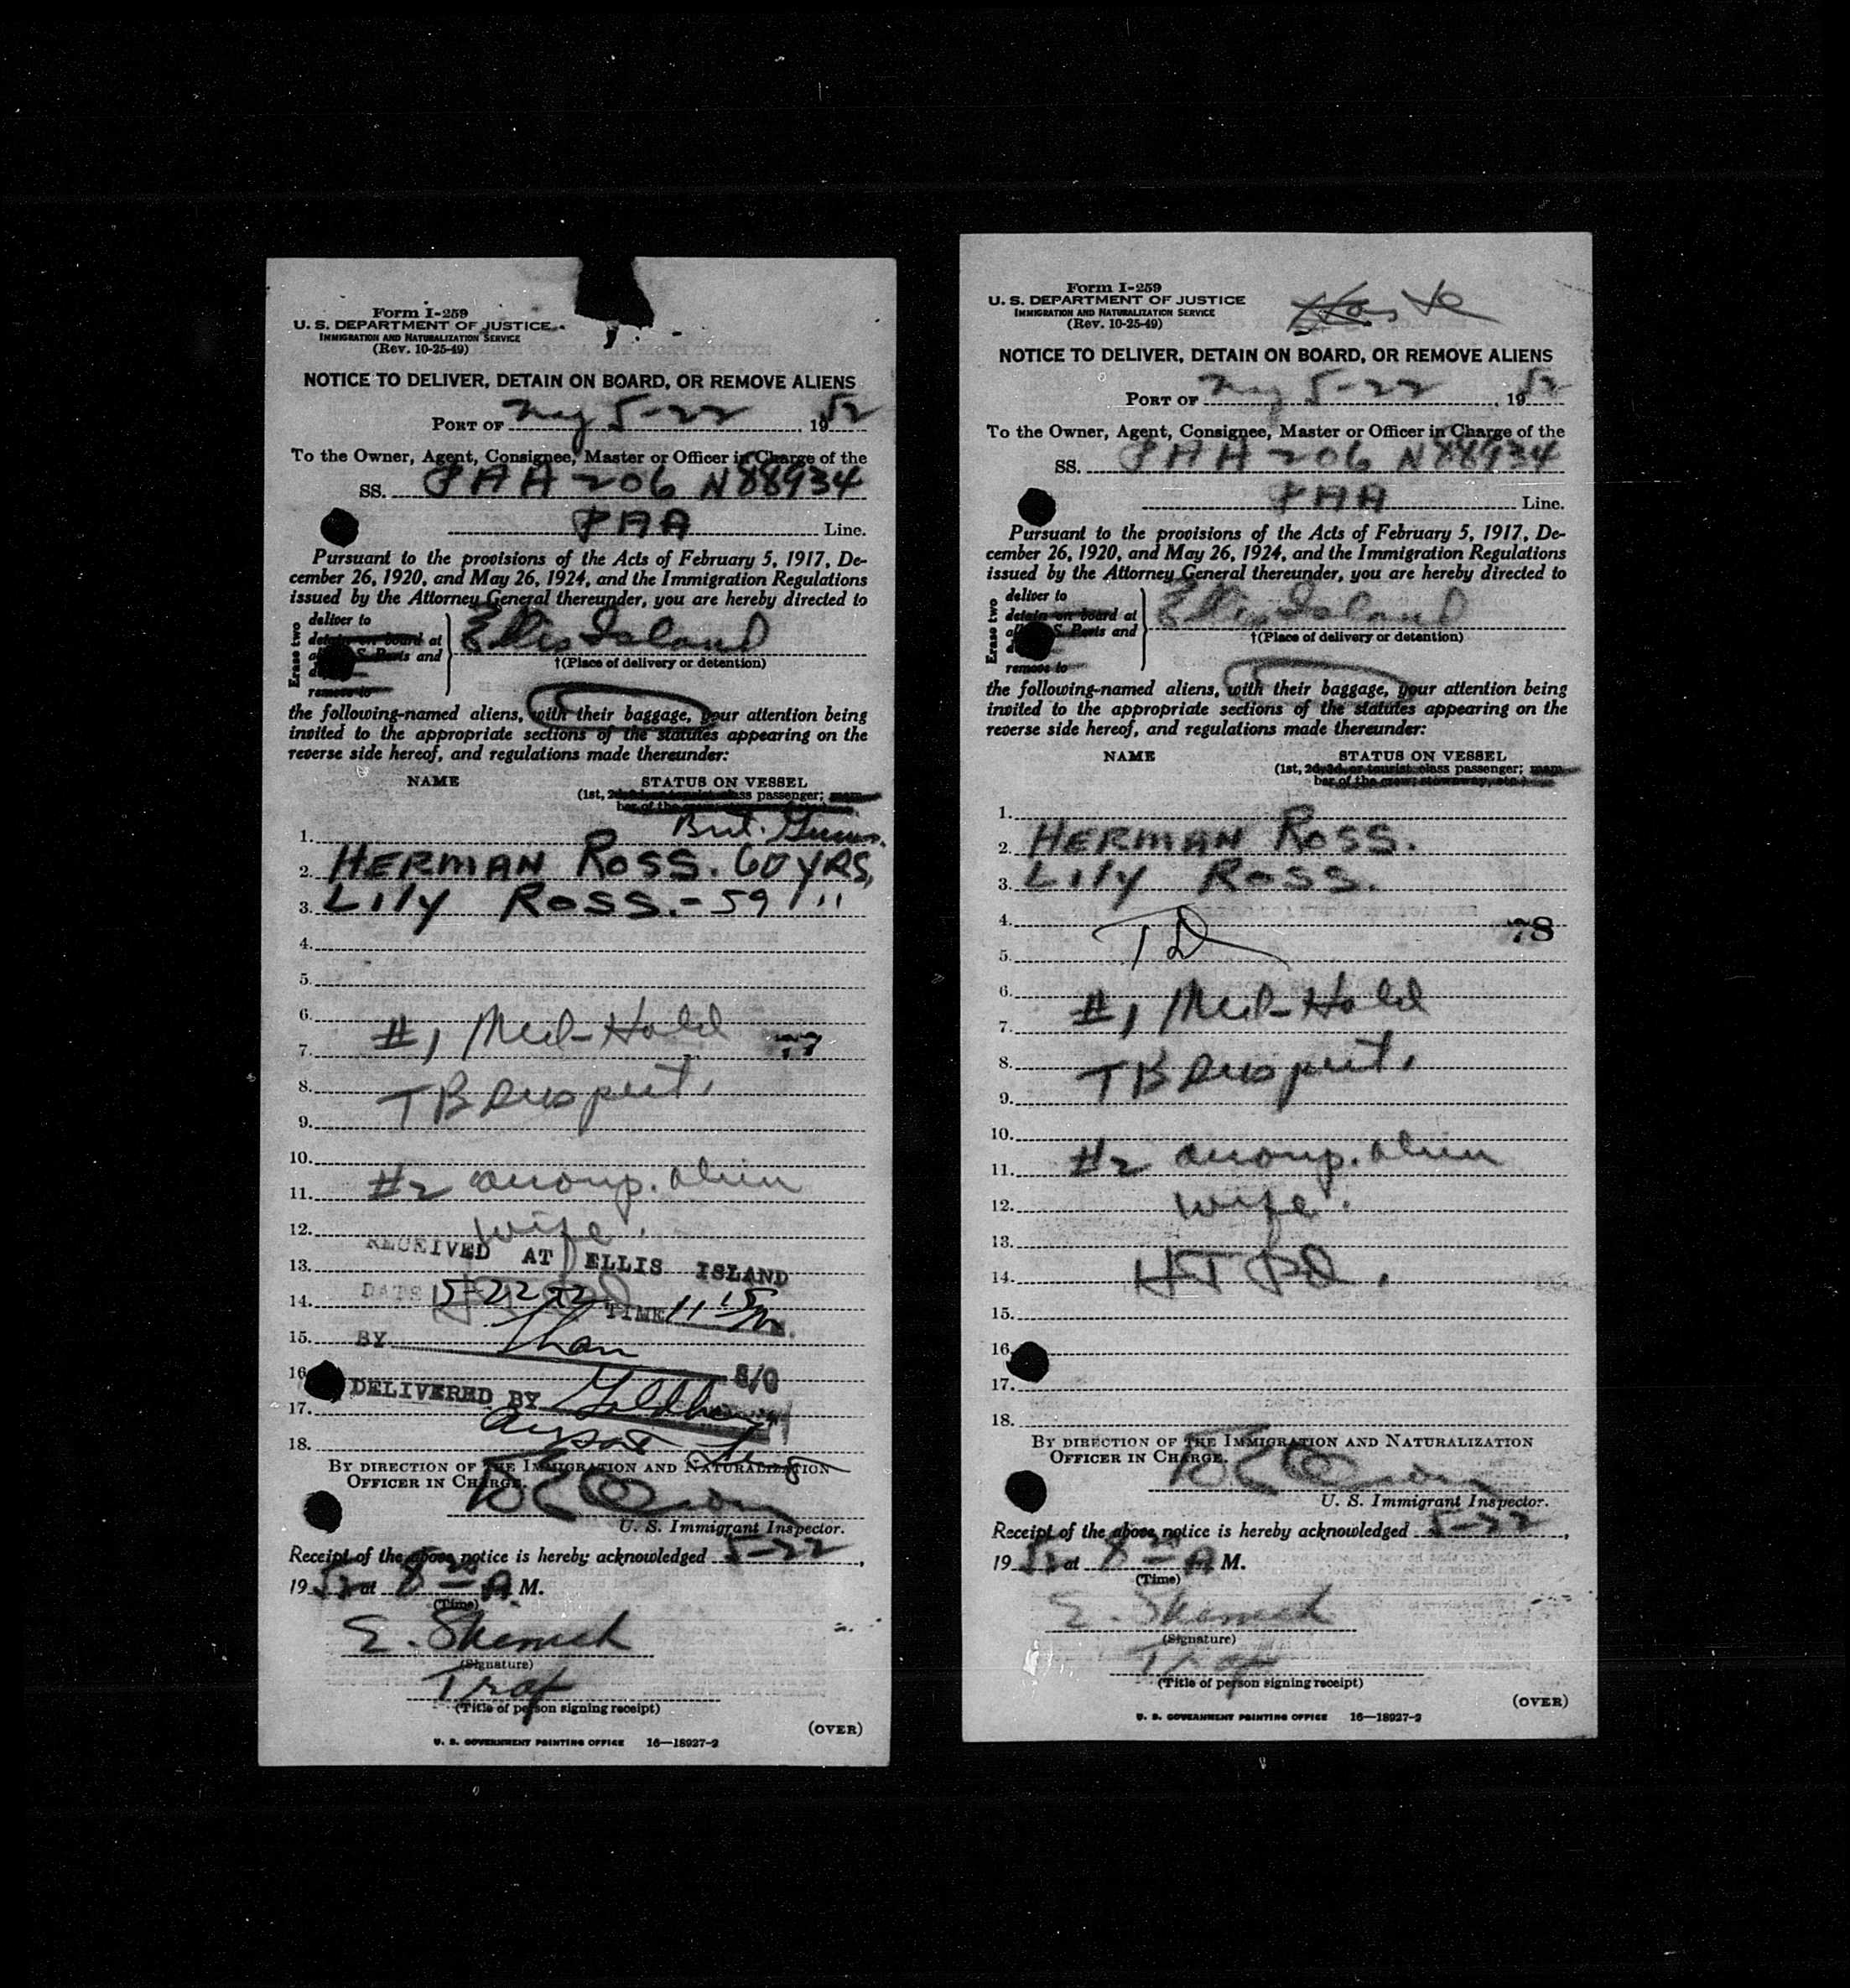 Form I-259
U. S. DEPARTMENT OF JUSTICE
IMMIGRATION AND NATURALIZATION SERVICE
(Rev. 10-25-49)
NOTICE TO DELIVER, DETAIN ON BOARD, OR REMOVE ALIENS
PORT OF 5-22, 1952
To the Owner, Agent, Consignee, Master or Officer in Charge of the
SS. PAA 206 N88934
PAA Line.
Pursuant to the provisions of the Acts of February 5, 1917, De-
cember 26, 1920, and May 26, 1924, and the Immigration Regulations
issued by the Attorney General thereunder, you are hereby directed to
Erase two
deliver to
detain on board at
S. Ports and
remove to
Ellis Island
†(Place of delivery or detention)
the following-named aliens, with their baggage, your attention being
invited to the appropriate sections of the statutes appearing on the
reverse side hereof, and regulations made thereunder:
NAME STATUS ON VESSEL
(1st, 2d, 3d, or tourist class passenger; mem-
ber of the crew; stowaway, etc.)
1. Brit.
2. HERMAN ROSS. 60 YRS,
3. Lily ROSS.- 59 "
4.
5.
6.
7. #1 Med-Hold 77
8. TB suspect.
9.
10.
11. #2 accomp. alien
12. wife.
RECEIVED AT ELLIS ISLAND
13.
14. DATE 5-22-52 TIME 11 15
15. BY
16. S/O
DELIVERED BY
17.
18.
BY DIRECTION OF THE IMMIGRATION AND NATURALIZATION
OFFICER IN CHARGE.
U. S. Immigrant Inspector.
Receipt of the above notice is hereby acknowledged 5-22,
1952 at 8 A. M.
(Time)
(Signature)
(Title of person signing receipt)
(OVER)
U. S. GOVERNMENT PRINTING OFFICE 16—18927-2
Form I-259
U. S. DEPARTMENT OF JUSTICE
IMMIGRATION AND NATURALIZATION SERVICE
(Rev. 10-25-49)
NOTICE TO DELIVER, DETAIN ON BOARD, OR REMOVE ALIENS
PORT OF 5-22, 1952
To the Owner, Agent, Consignee, Master or Officer in Charge of the
SS. PAA 206 N88934
PAA Line.
Pursuant to the provisions of the Acts of February 5, 1917, De-
cember 26, 1920, and May 26, 1924, and the Immigration Regulations
issued by the Attorney General thereunder, you are hereby directed to
Erase two
deliver to
detain on board at
S. Ports and
remove to
Ellis Island
†(Place of delivery or detention)
the following-named aliens, with their baggage, your attention being
invited to the appropriate sections of the statutes appearing on the
reverse side hereof, and regulations made thereunder:
NAME STATUS ON VESSEL
(1st, 2d, 3d, or tourist class passenger; mem-
ber of the crew; stowaway, etc.)
1.
2. HERMAN ROSS.
3. Lily ROSS.
4. 78
5. TD
6.
7. #1 Med-Hold
8. TB suspect.
9.
10.
11. #2 accomp. alien
12. wife.
13.
14.
15.
16.
17.
18.
BY DIRECTION OF THE IMMIGRATION AND NATURALIZATION
OFFICER IN CHARGE.
U. S. Immigrant Inspector.
Receipt of the above notice is hereby acknowledged 5-22,
1952 at 8 A. M.
(Time)
(Signature)
(Title of person signing receipt)
(OVER)
U. S. GOVERNMENT PRINTING OFFICE 16—18927-2